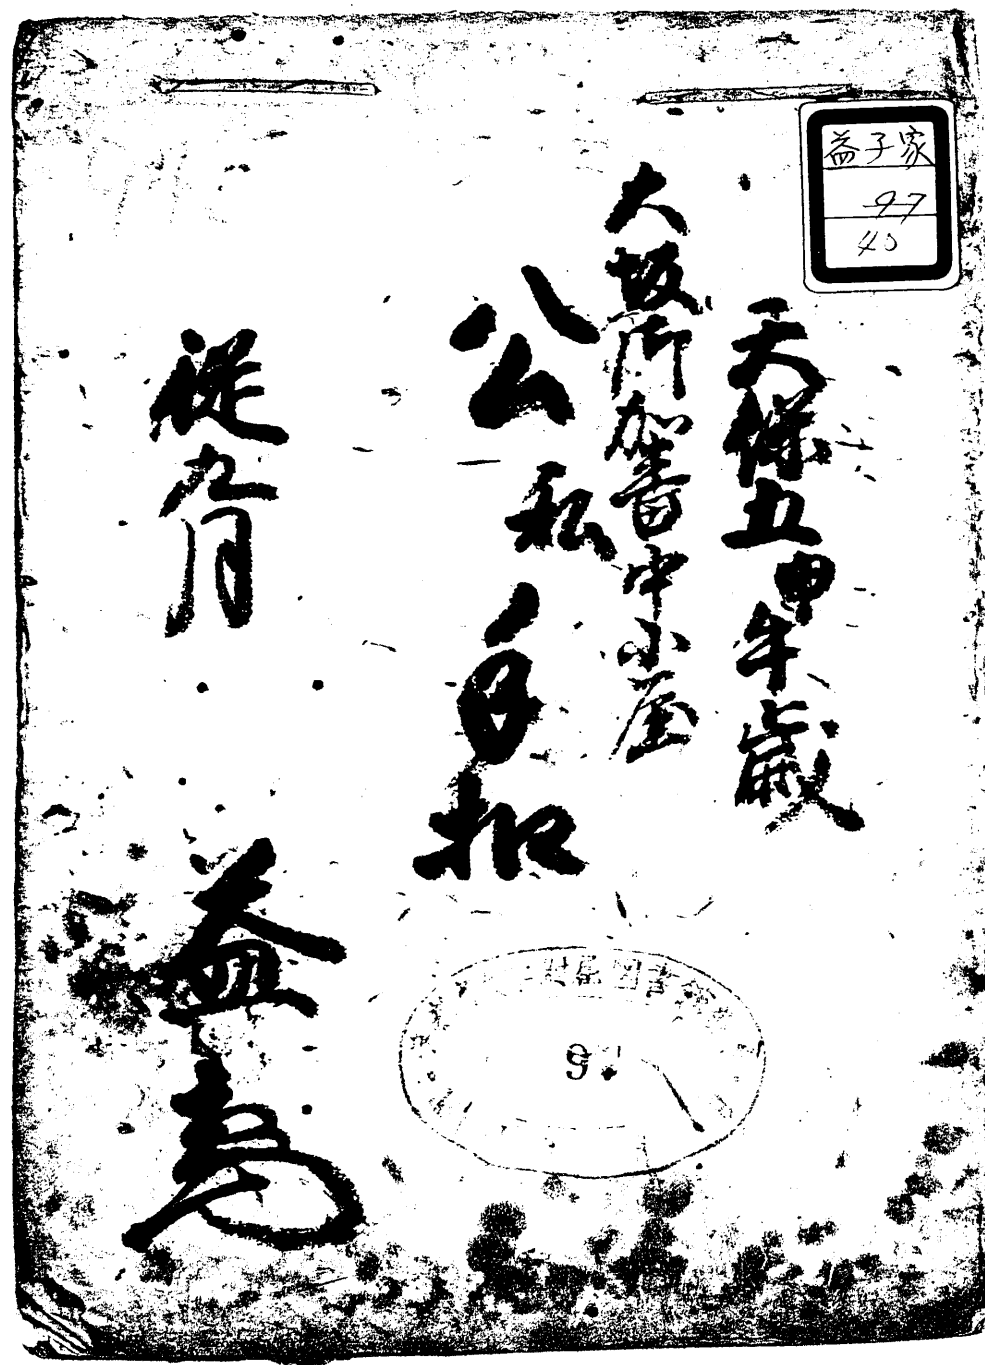 益子家
97
40
天保五甲午歳
大坂御加番中小屋
公私手扣
従九月
益
図書
9